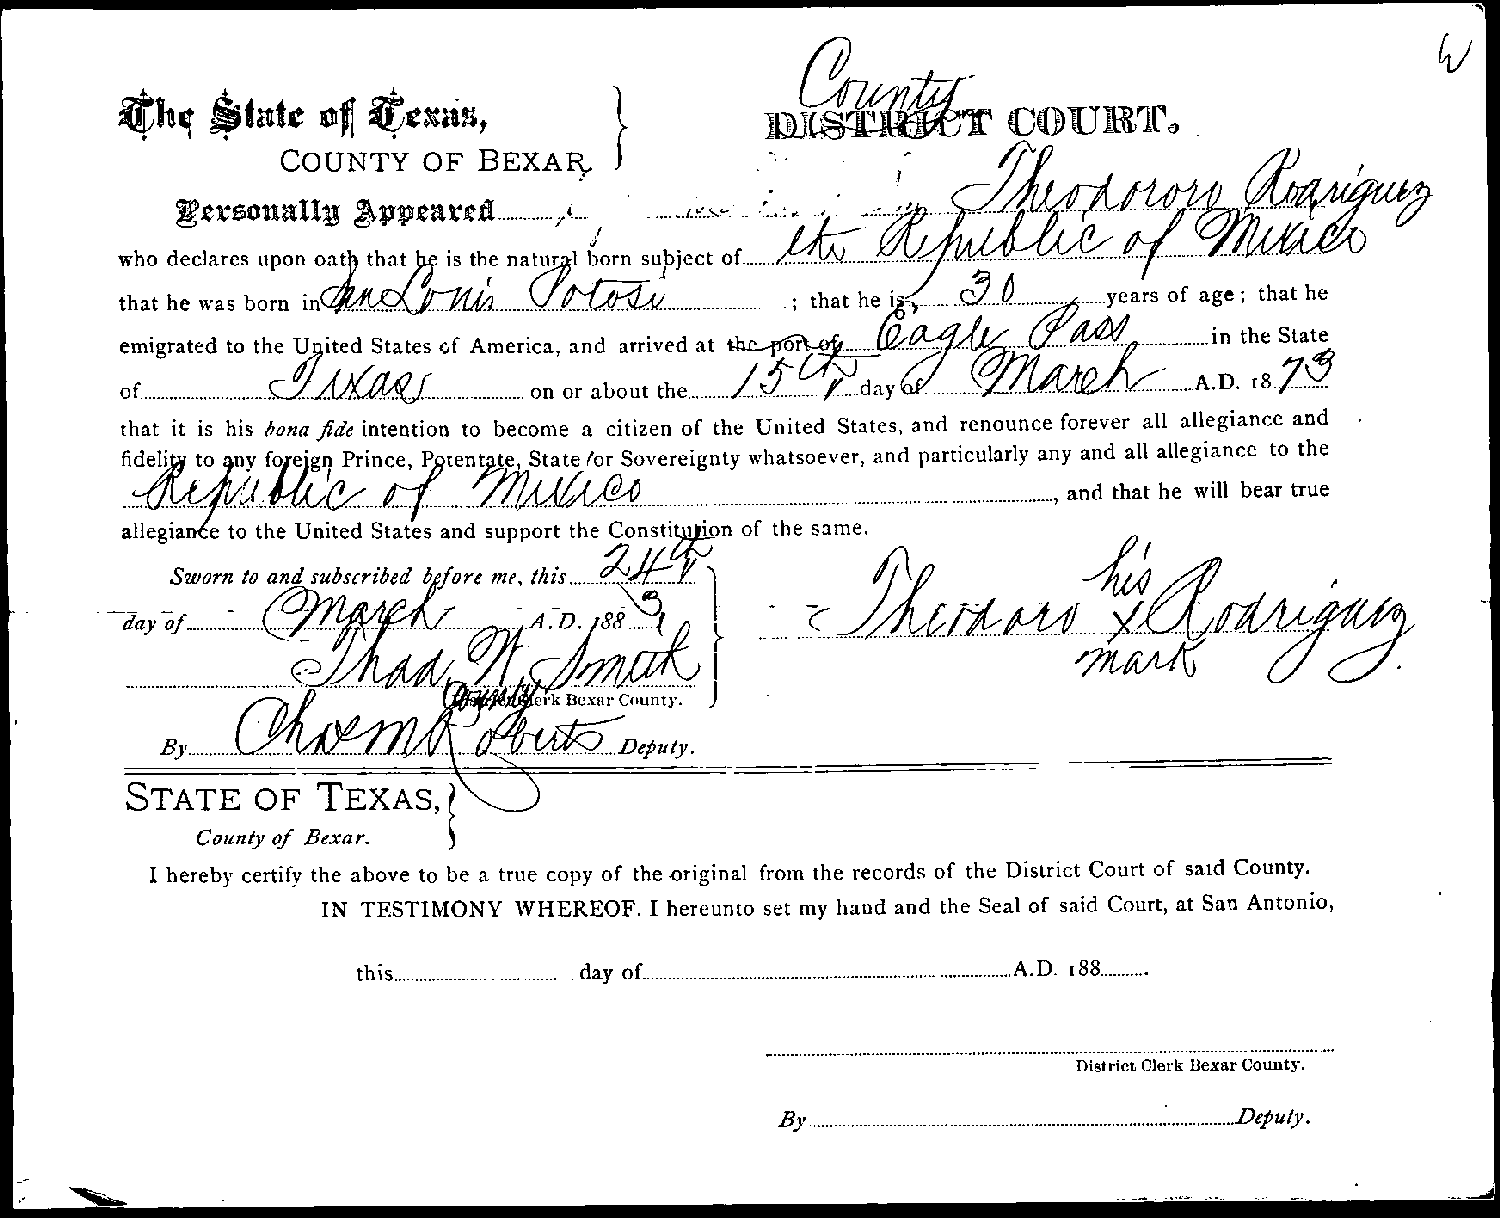 W
County
The State of Texas, DISTRICT COURT.
COUNTY OF BEXAR,
Personally Appeared Theodororo Rodriguez
who declares upon oath that he is the natural born subject of the Republic of Mexico
that he was born in San Louis Potosi ; that he is, 30 years of age; that he
emigrated to the United States of America, and arrived at the port of Eagle Pass in the State
of Texas on or about the 15th day of March A.D. 1873
that it is his bona fide intention to become a citizen of the United States, and renounce forever all allegiance and
fidelity to any foreign Prince, Potentate, State or Sovereignty whatsoever, and particularly any and all allegiance to the
Republic of Mexico, and that he will bear true
allegiance to the United States and support the Constitution of the same.
Sworn to and subscribed before me, this 24th
day of March A.D. 1883
Theodoro his x mark Rodriguez
Thad. W. Smith
County Clerk Bexar County.
By Chas M Roberts Deputy.
STATE OF TEXAS,
County of Bexar.
I hereby certify the above to be a true copy of the original from the records of the District Court of said County.
IN TESTIMONY WHEREOF, I hereunto set my hand and the Seal of said Court, at San Antonio,
this day of A.D. 188
District Clerk Bexar County.
By Deputy.